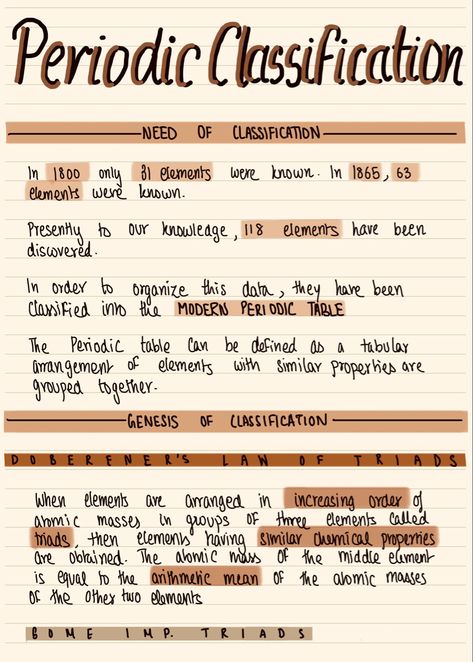 Periodic Classification
NEED OF CLASSIFICATION
In 1800 only 31 elements were known. In 1865, 63
elements were known.
Presently to our knowledge, 118 elements have been
discovered.
In order to organize this data, they have been
classified into the MODERN PERIODIC TABLE
The Periodic table can be defined as a tabular
arrangement of elements with similar properties are
grouped together.
GENESIS OF CLASSIFICATION
DOBERENER'S LAW OF TRIADS
When elements are arranged in increasing order of
atomic masses in groups of three elements called
triads, then elements having similar chemical properties
are obtained. The atomic mass of the middle element
is equal to the arithmetic mean of the atomic masses
of the other two elements
SOME IMP. TRIADS